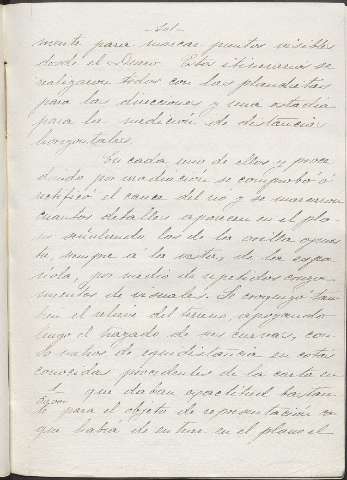 mente para marcar puntos visibles
desde el Duero. Estos itinerarios se
realizaron todos con las planchitas
para las direcciones y una estadia
para la medición de distancias
horizontales.
En cada uno de ellos y proce
diendo por radiación se comprobó ó
rectificó el cauce del rio y se marcaron
cuantos detalles aparecen en el pla
no situando los de la orilla opues
ta, siempre á la vista, de la espa
ñola, por medio de repetidos cruza
mientos de visuales. Se compuso tam
bien el relieve del terreno, apoyando
luego el trazado de sus curvas, con
metros de equidistancia en cotas
conocidas procedentes de la carta en
que daban exactitud bastan
te para el objeto de representación
que habia de entrar en el plano el